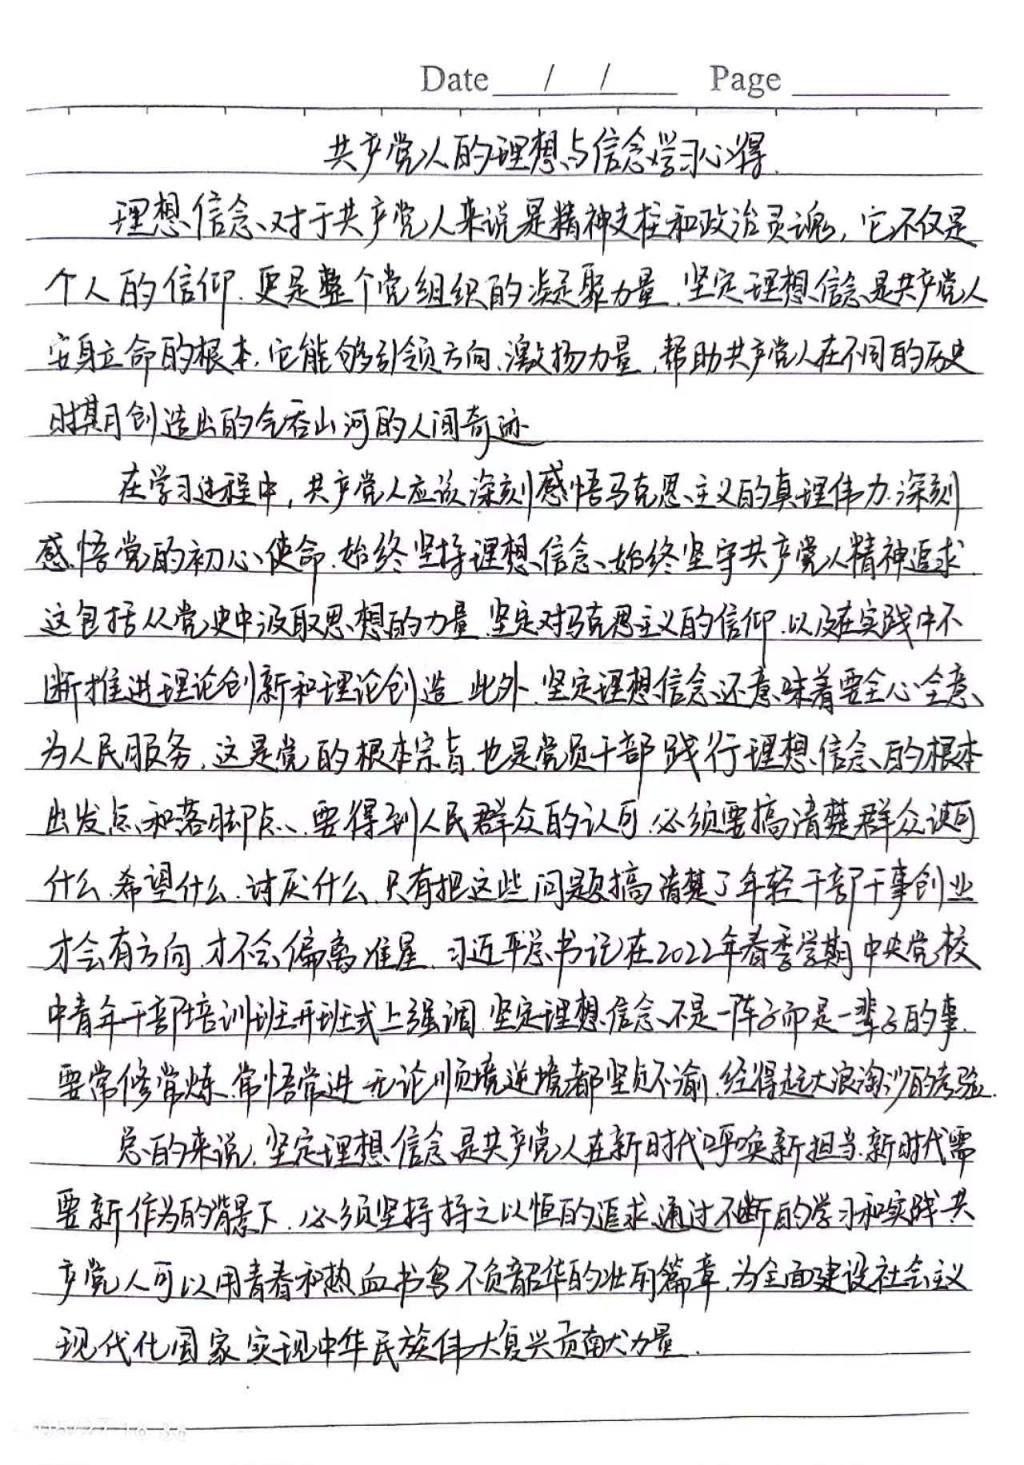 Date / / Page
共产党人的理想与信念学习心得.
理想信念对于共产党人来说是精神支柱和政治灵魂，它不仅是
个人的信仰.更是整个党组织的凝聚力量.坚定理想信念是共产党人
安身立命的根本.它能够引领方向.激扬力量.帮助共产党人在不同的历史
时期创造出的气吞山河的人间奇迹
在学习过程中，共产党人应该深刻感悟马克思主义的真理伟力.深刻
感悟党的初心使命.始终坚持理想信念、始终坚守共产党人精神追求.
这包括从党史中汲取思想的力量.坚定对马克思主义的信仰.以及在实践中不
断推进理论创新和理论创造.此外.坚定理想信念还意味着要全心全意
为人民服务.这是党的根本宗旨.也是党员干部践行理想信念的根本
出发点和落脚点.要得到人民群众的认可.必须要搞清楚群众认可
什么.希望什么.讨厌什么.只有把这些问题搞清楚了年轻干部干事创业
才会有方向.才不会偏离准星.习近平总书记在2022年春季学期中央党校
中青年干部培训班开班式上强调.坚定理想信念不是一阵子而是一辈子的事.
要常修常炼.常悟常进.无论顺境逆境都坚贞不渝.经得起大浪淘沙的考验.
总的来说.坚定理想信念是共产党人在新时代呼唤新担当.新时代需
要新作为的背景下.必须坚持持之以恒的追求.通过不断的学习和实践.共
产党人可以用青春和热血书写不负韶华的壮丽篇章.为全面建设社会主义
现代化国家实现中华民族伟大复兴贡献力量.